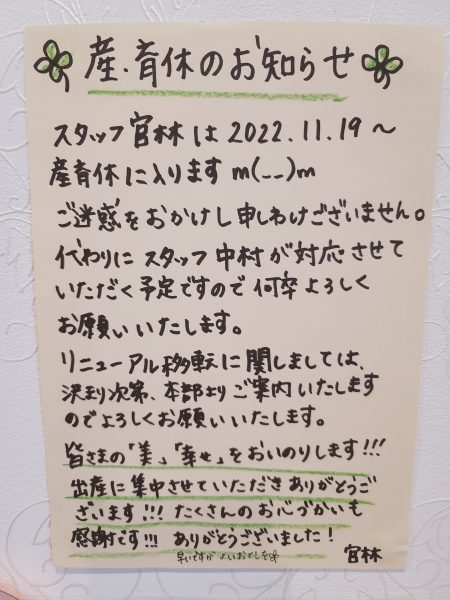 産・育休のお知らせ
スタッフ 官林は 2022.11.19～
産育休に入ります m(__)m
ご迷惑をおかけし申しわけございません。
代わりにスタッフ 中村が対応させて
いただく予定ですので何卒よろしく
お願いいたします。
リニューアル移転に関しましては、
決まり次第、本部よりご案内いたします
のでよろしくお願いいたします。
皆さまの「美」「幸せ」をおいのりします!!!
出産に集中させていただきありがとうご
ざいます!!! たくさんのお心づかいも
感謝です!!! ありがとうございました!
早いですが よいおとしを
官林